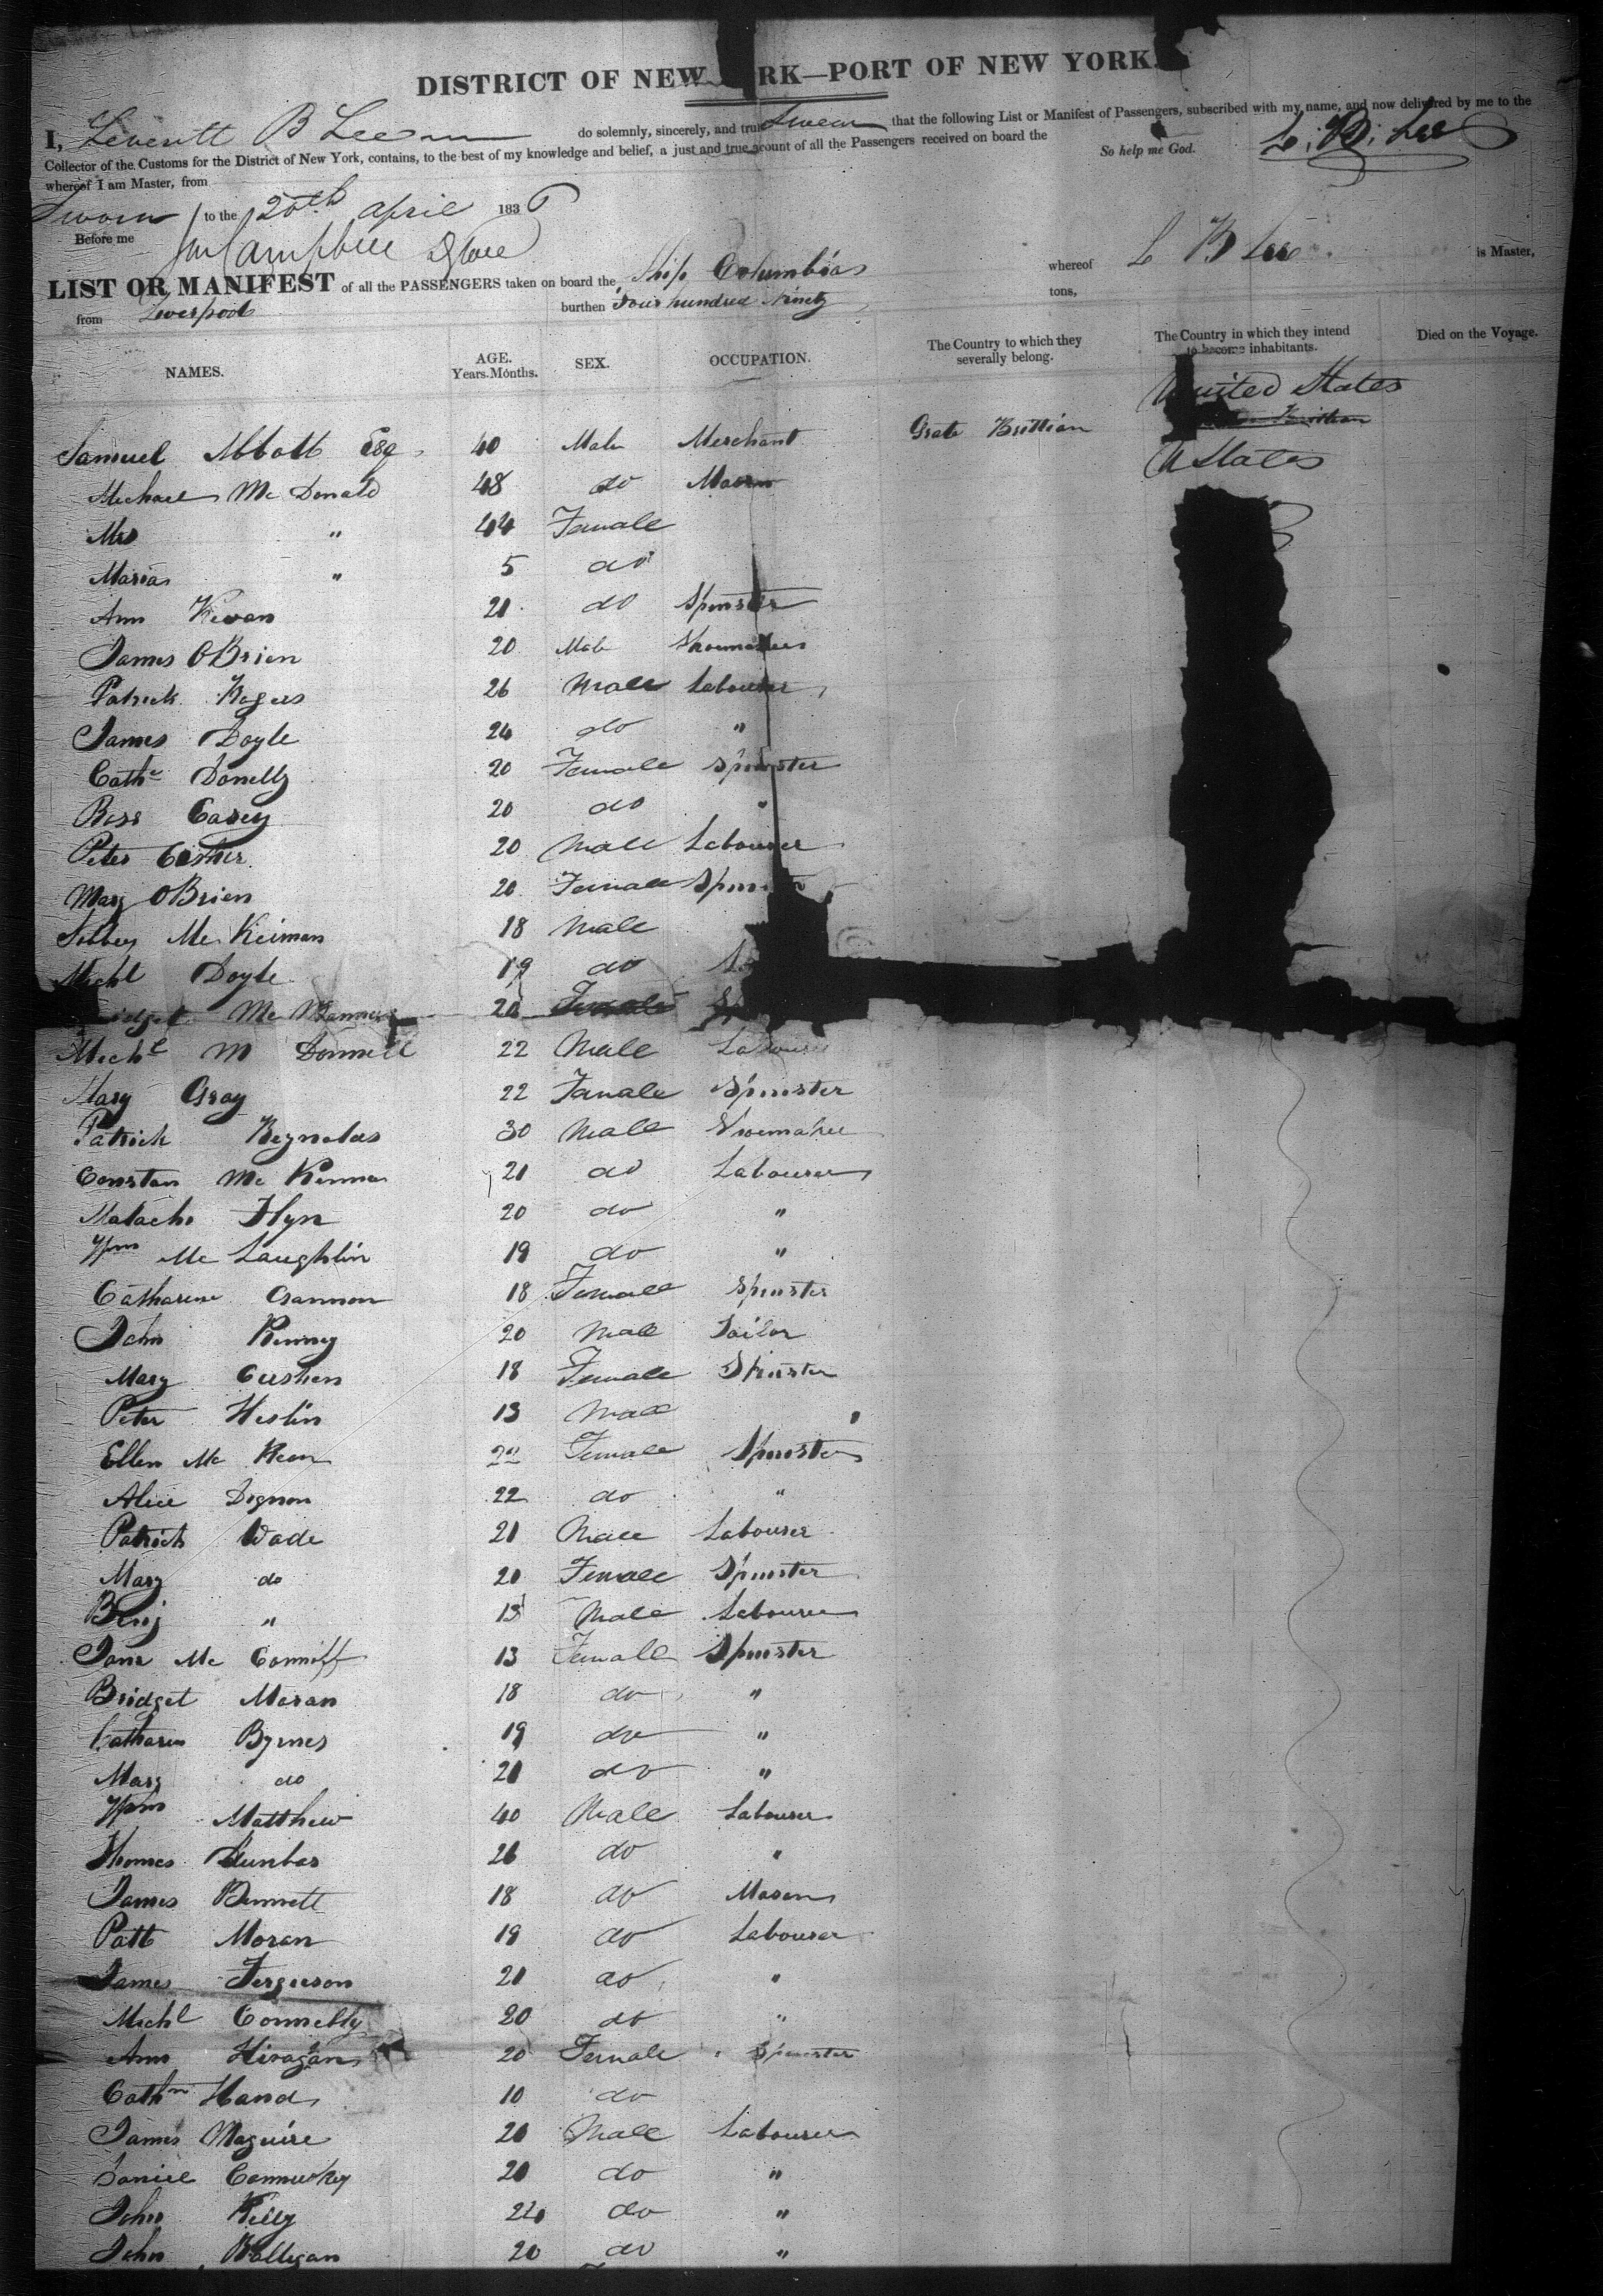 DISTRICT OF NEW RK—PORT OF NEW YORK.
I, Leveritt B Lee do solemnly, sincerely, and tru Swear that the following List or Manifest of Passengers, subscribed with my name, and now delivered by me to the
Collector of the Customs for the District of New York, contains, to the best of my knowledge and belief, a just and true acount of all the Passengers received on board the
whereof I am Master, from So help me God. L. B. Lee
Sworn to the 20th April 1836
Before me
LIST OR MANIFEST of all the PASSENGERS taken on board the Ship Columbia whereof L B Lee is Master,
from Liverpool burthen Four hundred Ninety tons,
NAMES. AGE. Years. Months. SEX. OCCUPATION. The Country to which they severally belong. The Country in which they intend to become inhabitants. Died on the Voyage.
United States
Samuel Abbott Esq 40 Male Merchant Grate Brittian
U States
Michael Mc Donald 48 do Mason
Mrs " 44 Female
Maria " 5 do
Ann 21 do Spinster
James OBrien 20 Male Shoemaker
Patrick Rogers 26 Male Labourer
James Doyle 24 do "
Cathe Donelly 20 Female Spinster
Bess Casey 20 do "
Peter 20 Male Labourer
Mary OBrien 20 Female Spin
Mc Keirnan 18 Male
Michl Doyle 19 do
idget Mc 20 Female
Michl M Donnell 22 Male Labourer
Mary Gray 22 Female Spinster
Patrick Reynolds 30 Male Shoemaker
Constan Mc 21 do Labourer
Malachi Flyn 20 do "
Wm Mc Laughlin 19 do "
Catharine Gannon 18 Female Spinster
John Kenney 20 Male Tailor
Mary Cushen 18 Female Spinster
Peter Heslin 13 Male
Ellen Mc Keon 22 Female Spinster
Alice Dignon 22 do "
Patrick Wade 21 Male Labourer
Mary do 20 Female Spinster
Benj " 13 Male Labourer
Jane Mc Conniff 13 Female Spinster
Bridget Moran 18 do "
Catharin Byrnes 19 do "
Mary do 21 do "
Wm Matthew 40 Male Labourer
Thomas Dunbar 26 do "
James Bennett 18 do Mason
Patt Moran 19 do Labourer
James Ferguson 21 do "
Michl Connelly 20 do "
Ann 20 Female Spinster
Cathn Hand 10 do
James Maguire 20 Male Labourer
Daniel 20 do "
John Kelly 24 do "
John 20 do "